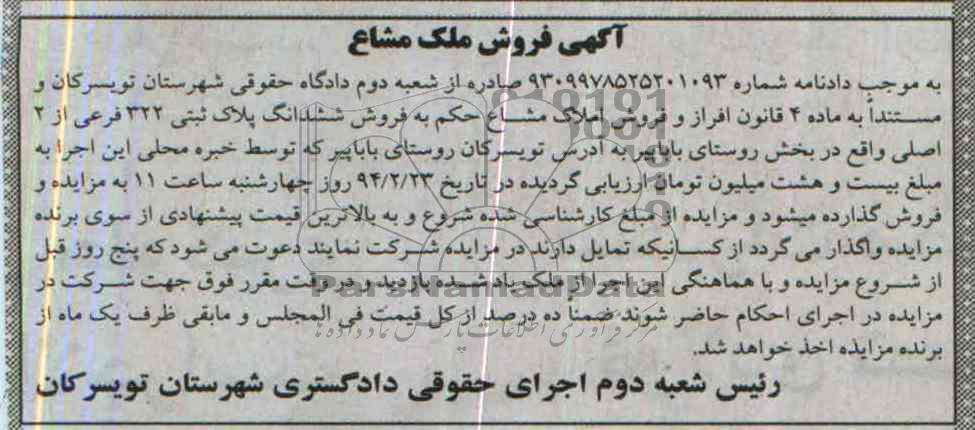 آگهی فروش ملک مشاع
به موجب دادنامه شماره ۹۳۰۹۹۷۸۵۲۵۲۰۱۰۹۳ صادره از شعبه دوم دادگاه حقوقی شهرستان تویسرکان و
مستنداً به ماده ۴ قانون افراز و فروش املاک مشاع حکم به فروش ششدانگ پلاک ثبتی ۳۲۲ فرعی از ۲
اصلی واقع در بخش روستای باباپیر به آدرس تویسرکان روستای باباپیر که توسط خبره محلی این اجرا به
مبلغ بیست و هشت میلیون تومان ارزیابی گردیده در تاریخ ۹۴/۲/۲۳ روز چهارشنبه ساعت ۱۱ به مزایده و
فروش گذارده میشود و مزایده از مبلغ کارشناسی شده شروع و به بالاترین قیمت پیشنهادی از سوی برنده
مزایده واگذار می گردد از کسانیکه تمایل دارند در مزایده شرکت نمایند دعوت می شود که پنج روز قبل
از شروع مزایده و با هماهنگی این اجرا از ملک یاد شده بازدید و در وقت مقرر فوق جهت شرکت در
مزایده در اجرای احکام حاضر شوند ضمناً ده درصد از کل قیمت فی المجلس و مابقی ظرف یک ماه از
برنده مزایده اخذ خواهد شد.
رئیس شعبه دوم اجرای حقوقی دادگستری شهرستان تویسرکان
ParsNamadData